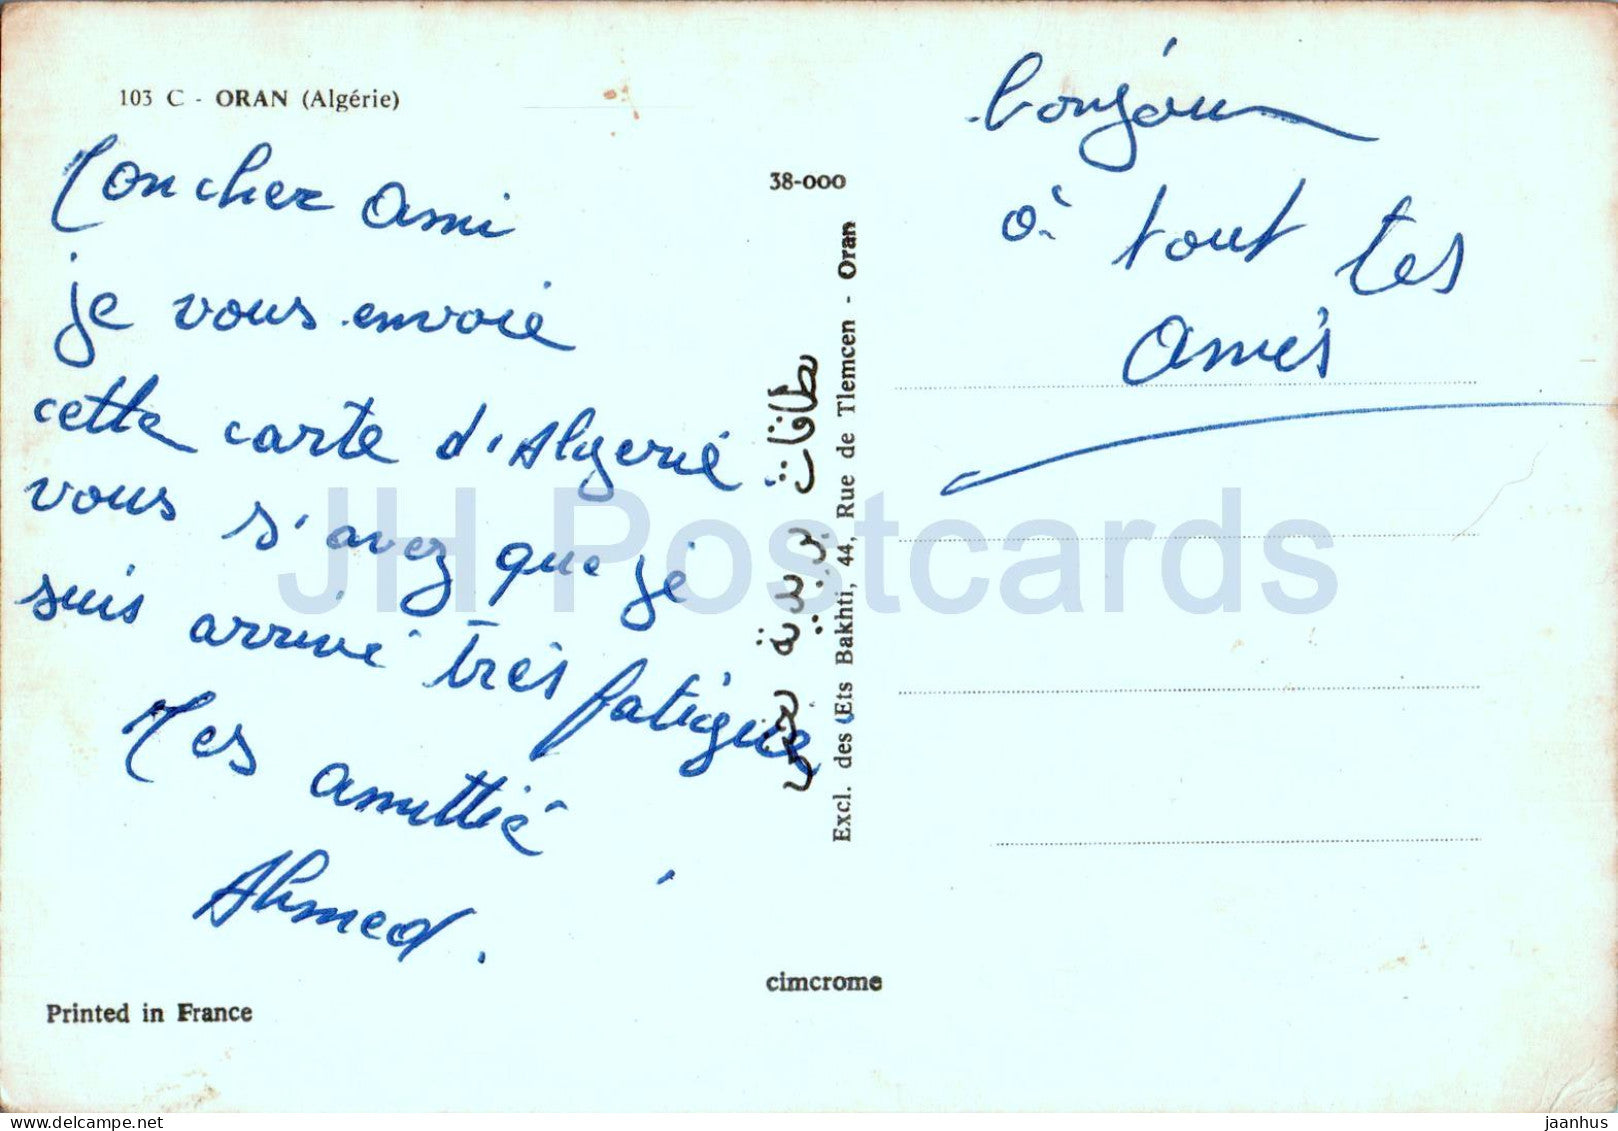 103 C - ORAN (Algérie)
Mon cher ami
je vous envoie
cette carte d'Algerié
vous s'avez que je
suis arrivé très fatigué
Mes amittié
Ahmed.
bonjour
à tout tes
amés
38-000
Excl. des Ets Bakhti, 44, Rue de Tlemcen - Oran
بطاقات بريدية
cimcrome
Printed in France
JH Postcards
delcampe.net
jaanhus